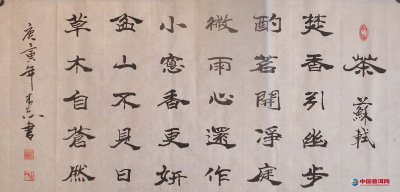 茶
蘇軾
焚香引幽步
酌茗開淨
微雨心還作
小窓香更妍
盆山不見日
草木自蒼然
庚寅年書
中国普洱网